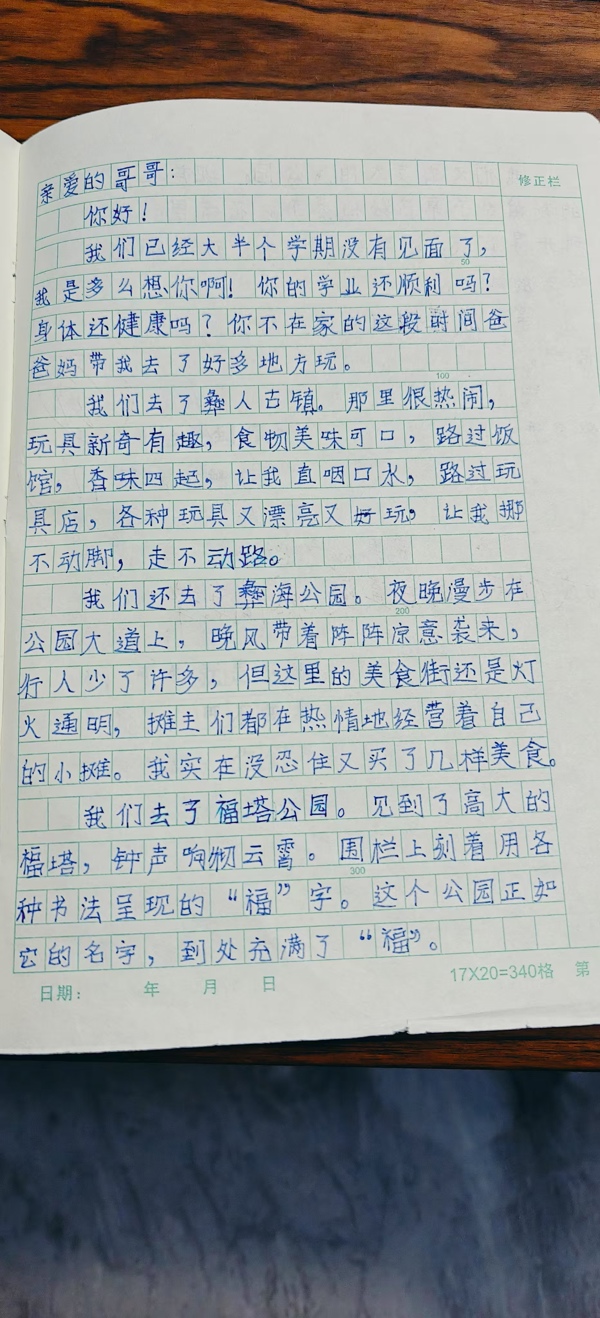 亲爱的哥哥：
修正栏
你好！
我们已经大半个学期没有见面了，
50
我是多么想你啊！你的学业还顺利吗？
身体还健康吗？你不在家的这段时间爸
爸妈带我去了好多地方玩。
100
我们去了彝人古镇。那里很热闹，
玩具新奇有趣，食物美味可口，路过饭
馆，香味四起，让我直咽口水，路过玩
具店，各种玩具又漂亮又好玩，让我挪
不动脚，走不动路。
我们还去了彝海公园。夜晚漫步在
200
公园大道上，晚风带着阵阵凉意袭来，
行人少了许多，但这里的美食街还是灯
火通明，摊主们都在热情地经营着自己
的小摊。我实在没忍住又买了几样美食。
我们去了福塔公园。见到了高大的
福塔，钟声响彻云霄。围栏上刻着用各
300
种书法呈现的“福”字。这个公园正如
它的名字，到处充满了“福”。
日期： 年 月 日
17X20=340格 第